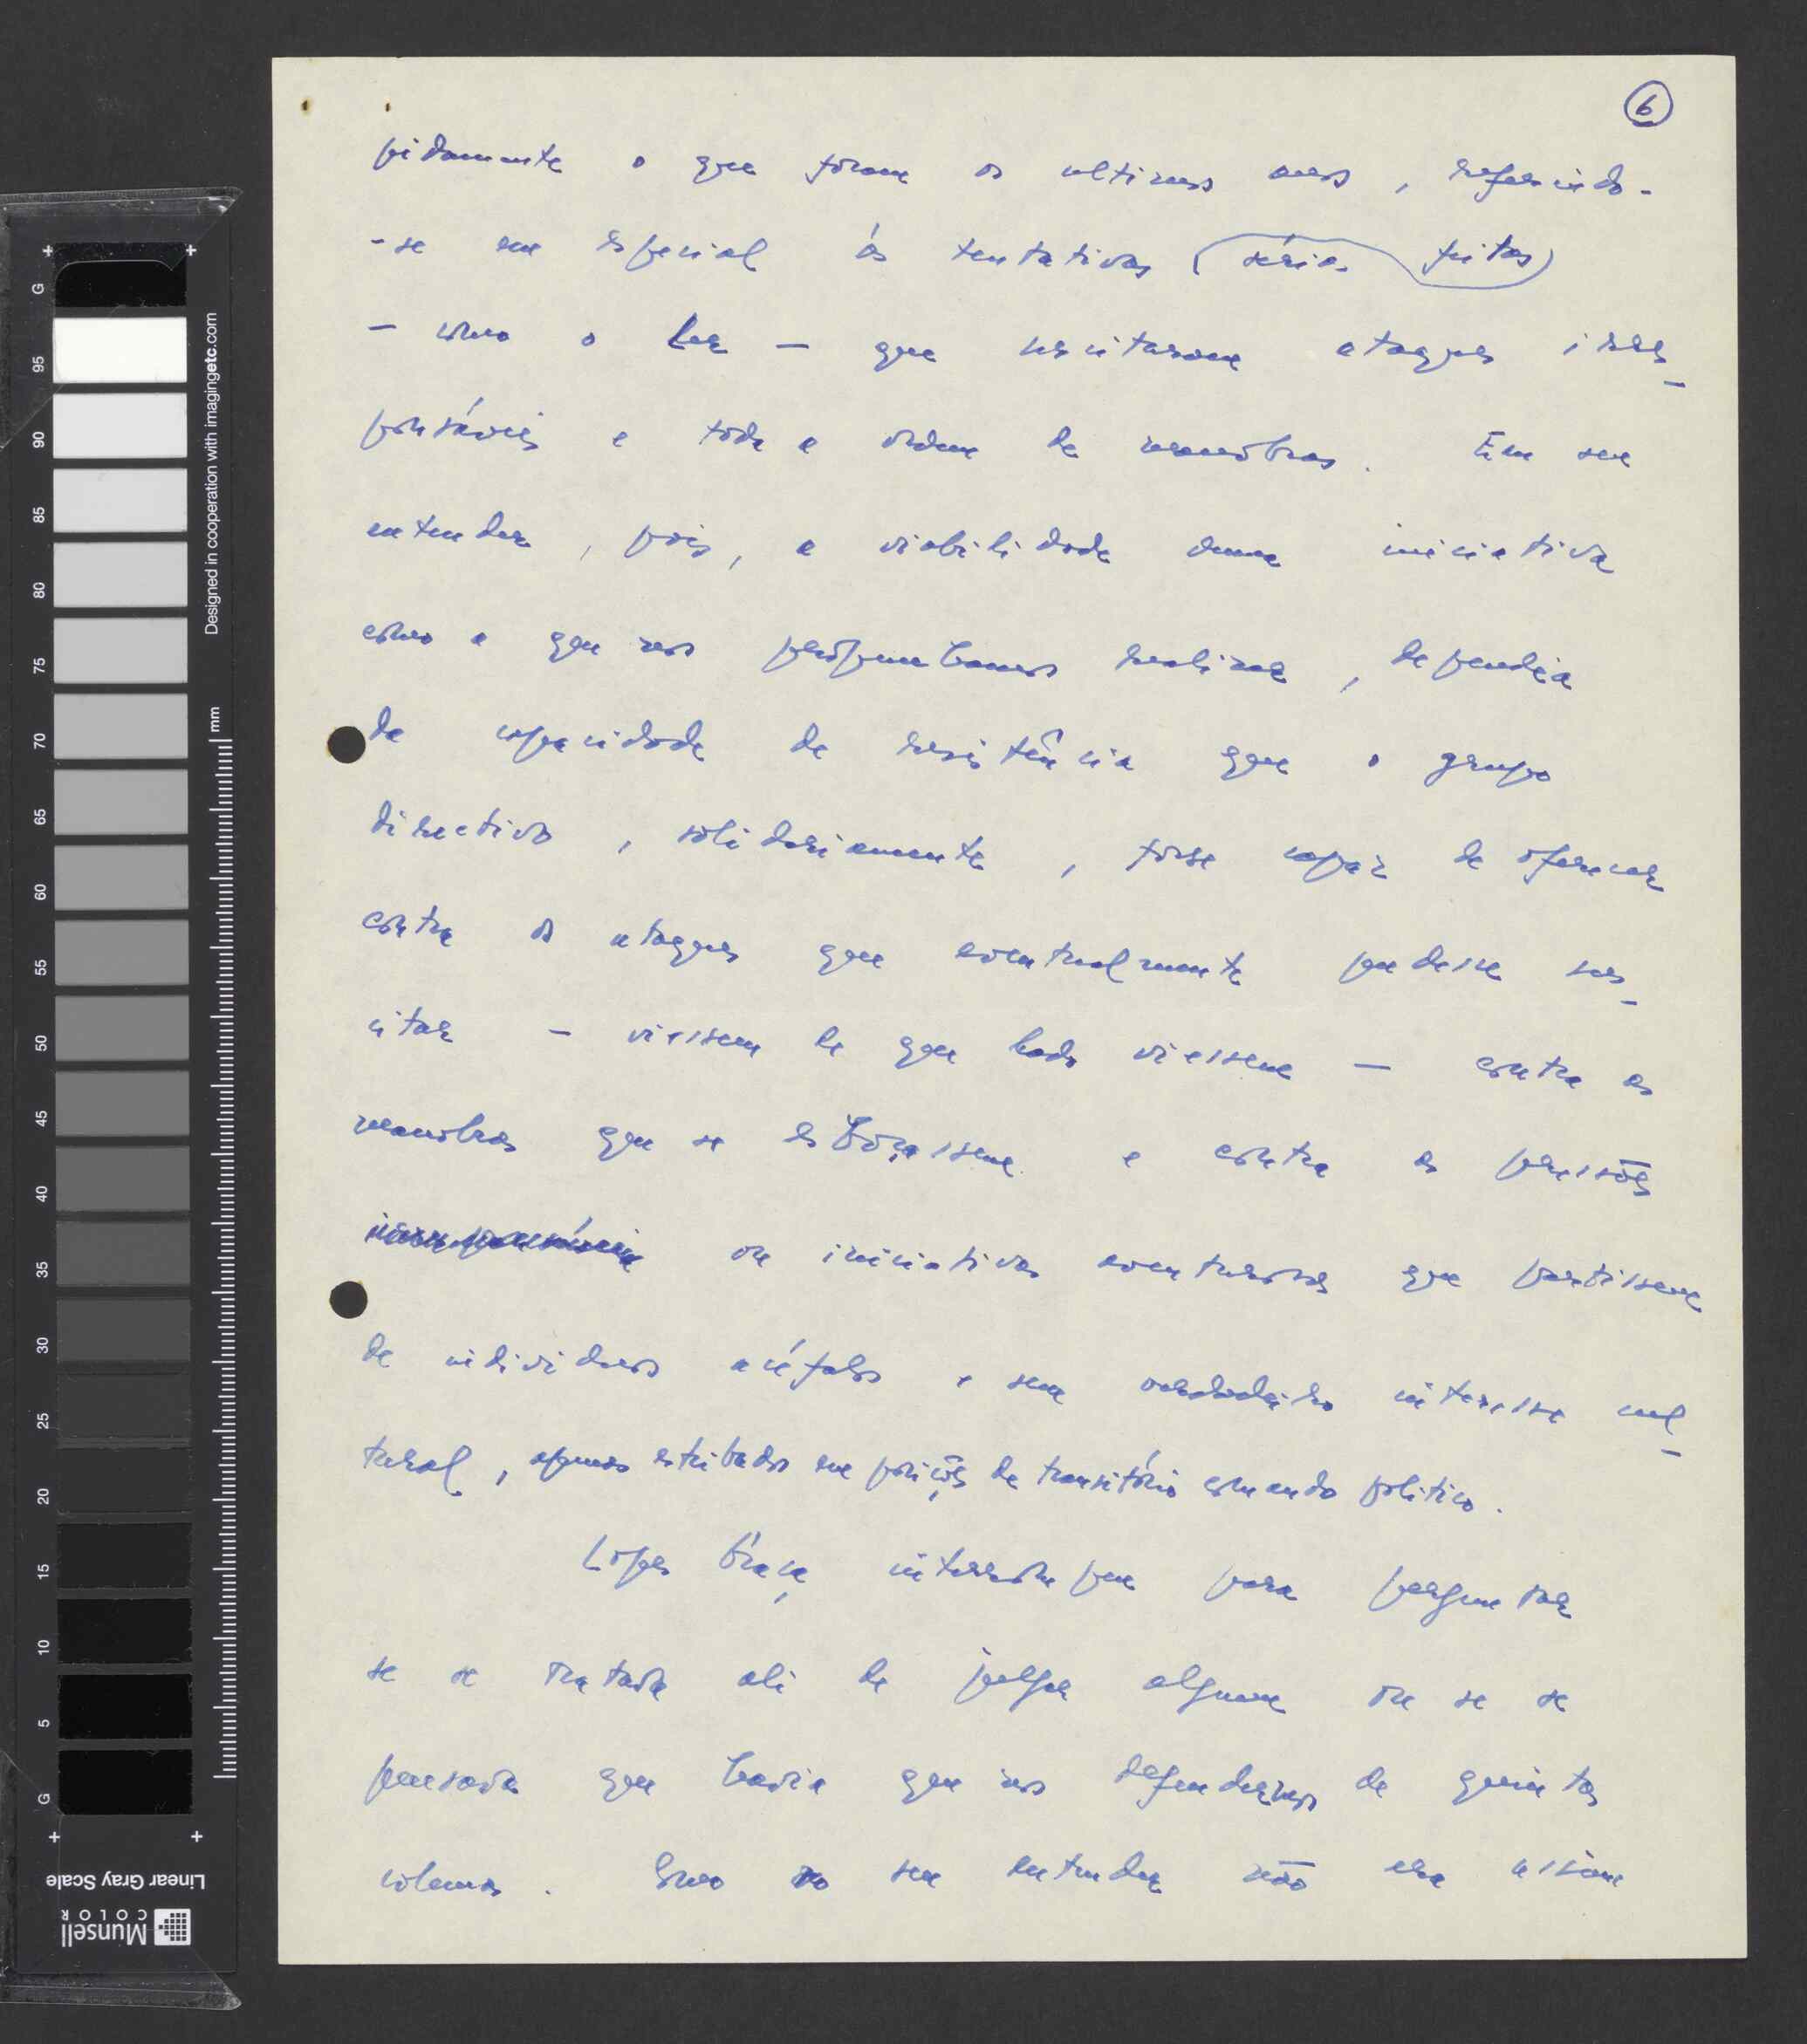 6
pidamente o que foram os ultimos anos, referindo-
-se em especial ás tentativas (sérias feitas)
— como o Ler — que suscitaram ataques irres_
ponsáveis e toda a ordem de manobras. Em seu
entender, pois, a viabilidade duma iniciativa
como a que nos propunhamos realizar, dependia
da capacidade de resistência que o grupo
directivo, solidariamente, fosse capaz de oferecer
contra os ataques que eventualmente pudesse sus_
citar — viessem de que lado viessem — contra as
manobras que se esboçassem e contra as pressões
ou iniciativas aventurosas que partissem
de individuos acéfalos e sem verdadeiro interesse cul_
tural, apenas estribados em posições de transitório comando politico.
Lopes Graça interrompeu para perguntar
se se tratava ali de julgar alguem ou se se
pensava que havia que nos defendermos de quintas
colunas. Como no seu entender não era assim
G 95 90 85 80 75 70 65 60 55 50 45 40 35 30 25 20 15 10 5 G
mm
Designed in cooperation with imagingetc.com
Linear Gray Scale
Munsell
COLOR